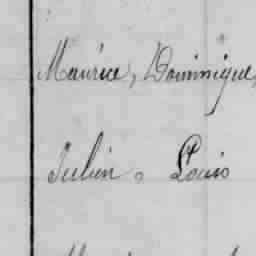 Maurice, Dominique,
Julien. Louis